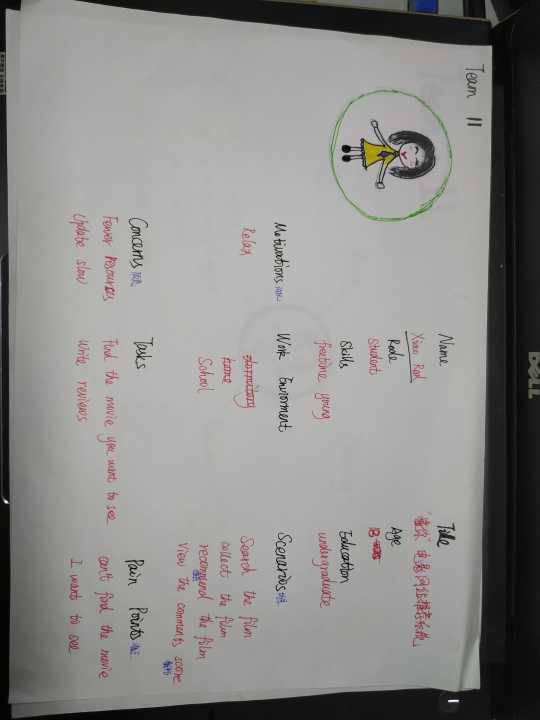 Team 11
Name
Xiao Red
Title
电影网站推荐系统
Role
Student
Age
18
Skills
freetime young
Education
undergraduate
Motivations
Relax
Work Enviorment
dormitory
home
School
Scenarios
Search the film
collect the film
recommend the film
View the comments score
Concerns
Fewer resources
Update slow
Tasks
Find the movie you want to see
Write reviews
Pain Points
can't find the movie
I want to see
DELL